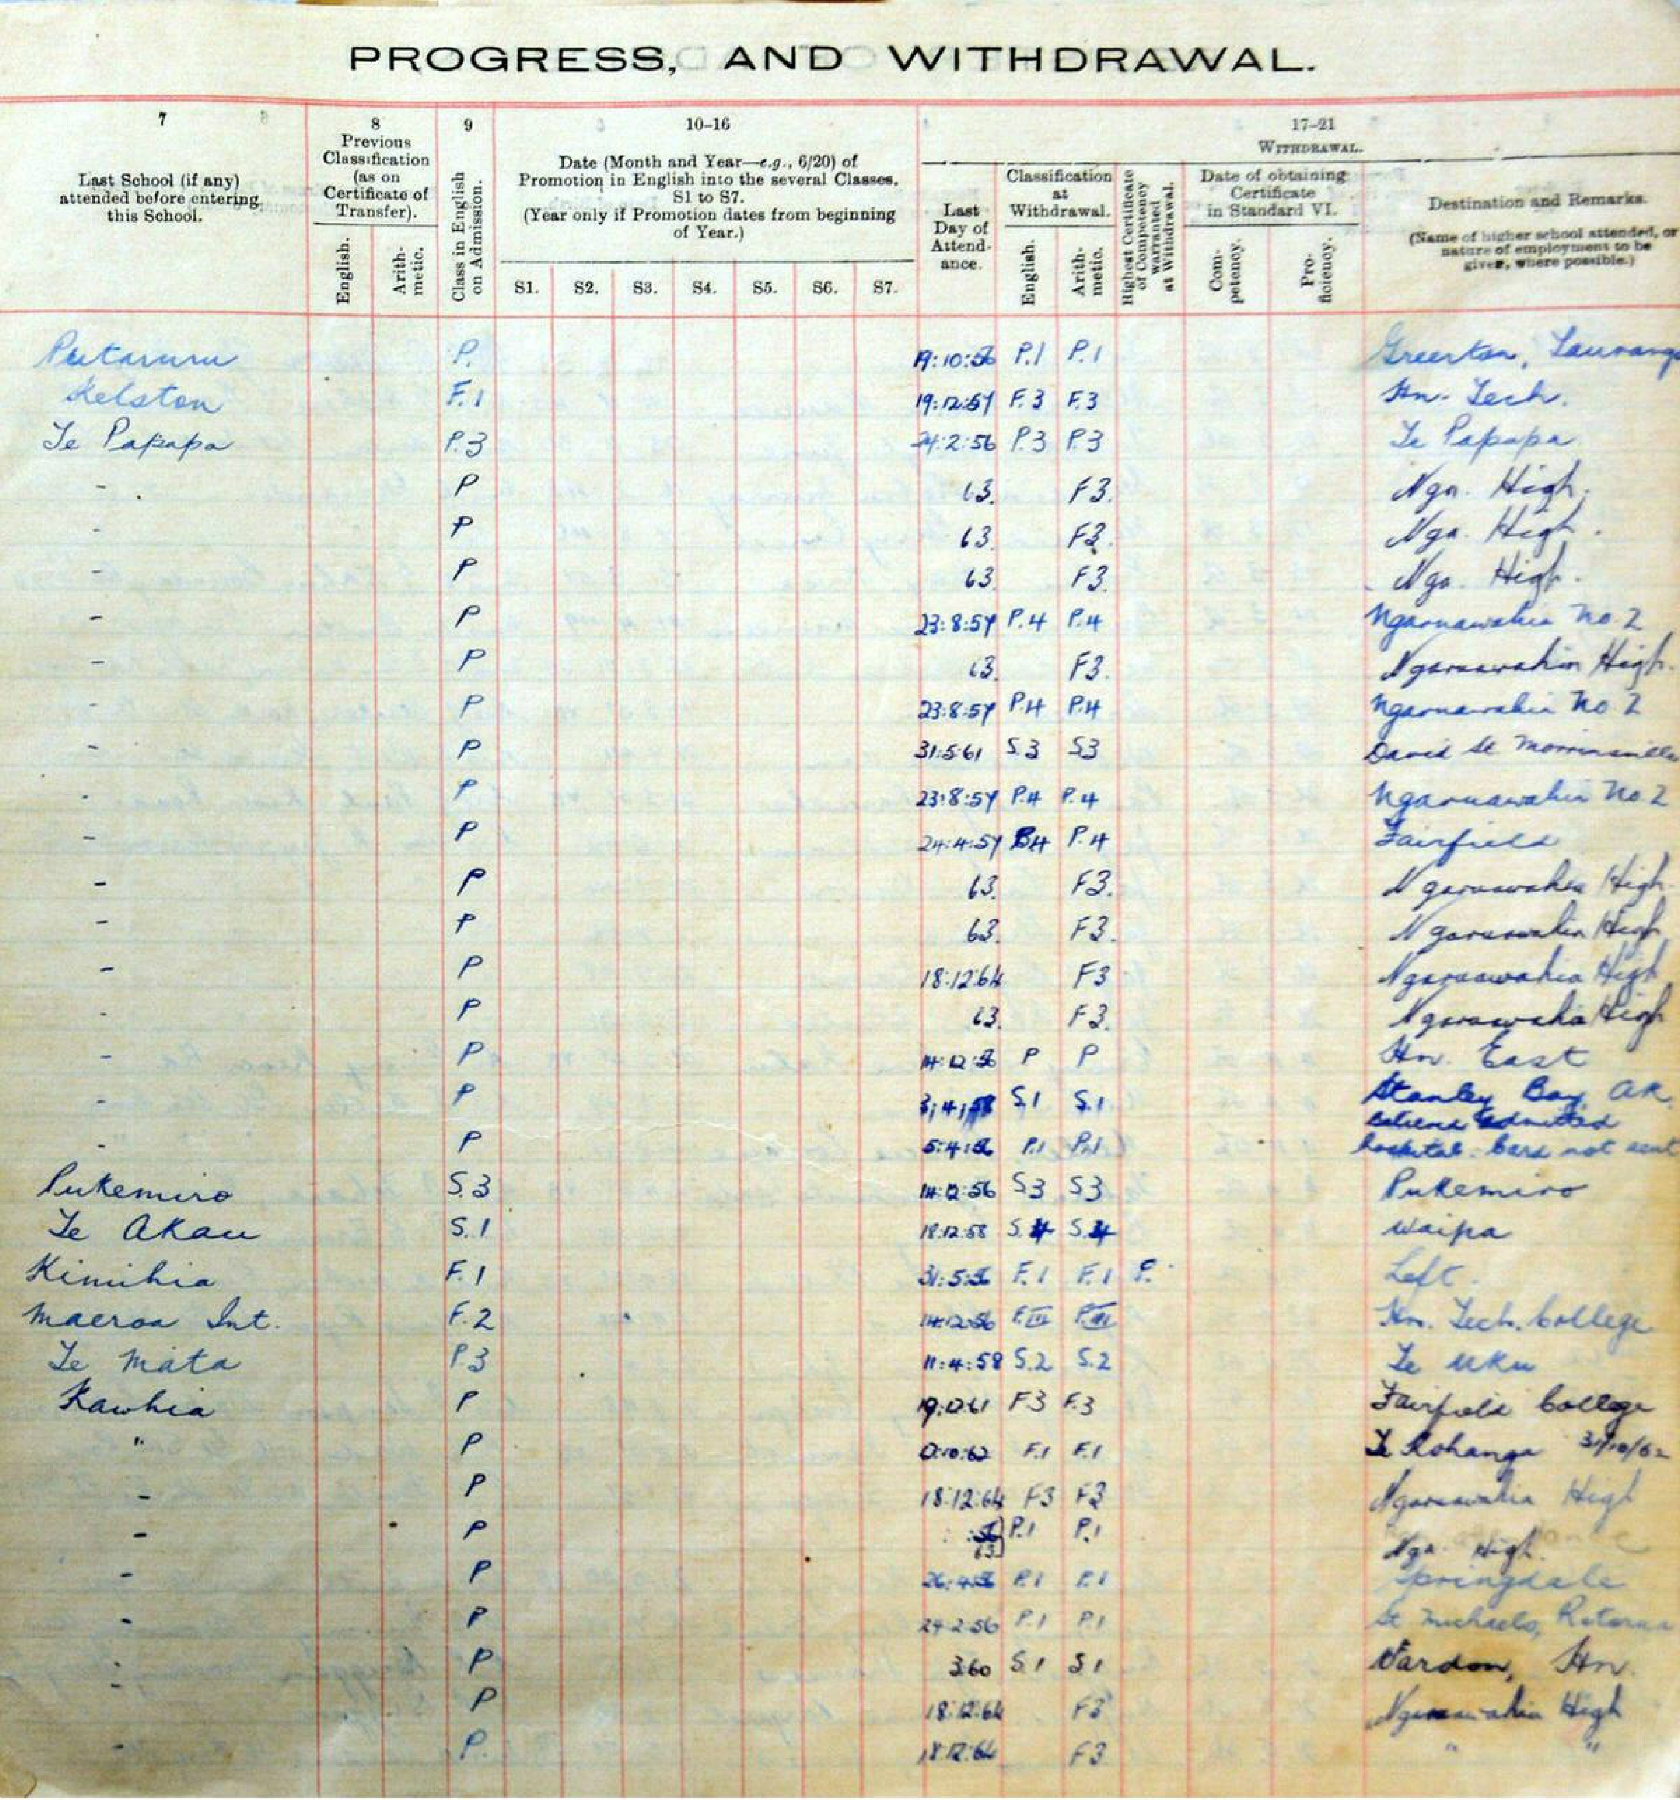 PROGRESS, AND WITHDRAWAL.
7 8 9 10–16 17–21
Last School (if any) attended before entering this School.
Previous Classification (as on Certificate of Transfer).
English. Arithmetic.
Class in English on Admission.
Date (Month and Year—e.g., 6/20) of Promotion in English into the several Classes, S1 to S7.
(Year only if Promotion dates from beginning of Year.)
S1. S2. S3. S4. S5. S6. S7.
WITHDRAWAL.
Last Day of Attendance.
Classification at Withdrawal.
English. Arithmetic.
Highest Certificate of Competency warranted at Withdrawal.
Date of obtaining Certificate in Standard VI.
Competency. Proficiency.
Destination and Remarks.
(Name of higher school attended, or nature of employment to be given, where possible.)
Putaruru P. 19:10:56 P.1 P.1 Greerton, Tauranga
Kelston F.1 19:12:57 F.3 F.3 Hn. Tech.
Te Papapa P.3 24:2:56 P.3 P.3 Te Papapa
- P 63. F3. Nga. High.
- P 63. F3. Nga. High.
- P 63. F3. Nga. High.
- P 23:8:57 P.4 P.4 Ngaruawahia No. 2
- P 63. F3. Ngaruawahia High.
- P 23:8:57 P.4 P.4 Ngaruawahia No 2
- P 31:5:61 S.3 S3 David St Morrinsville
- P 23:8:57 P.4 P.4 Ngaruawahia No.2
- P 24:4:57 P.4 Fairfield
- P 63. F3. Ngaruawahia High
- P 63. F3. Ngaruawahia High
- P 18:12:64 F3 Ngaruawahia High
- P 63. F3. Ngaruawahia High
- P 14:12:56 P P Hn. East
- P S.1 S.1. Stanley Bay, AK.
admitted
- P 5:4:56 P.1 P.1 hospital. Card not sent
Pukemiro S.3 14:12:56 S3 S3 Pukemiro
Te Akau S.1 18:12:58 S.4 S.4 Waipa
Kimihia F.1 31:5:56 F.1 F.1 Left.
Maeroa Int. F.2 14:12:56 F.III F.III Hn. Tech. College
Te Mata P3 11:4:58 S.2 S.2 Te Uku
Kawhia P 19:12:61 F3 F.3 Fairfield College
" P F.1 F.1 Te Kohanga 31/10/62
- P 18:12:64 F3 F3 Ngaruawahia High
- P 63 P.1 P.1 Nga. High.
- P 26:4:56 P.1 P.1 Springdale
- P 24:2:56 P.1 P.1 St Michaels, Rotorua
- P 3.60 S.1 S1 Vardon, Hn.
P 18:12:64 F3 Ngaruawahia High
- P. 18:12:64 F3 " "